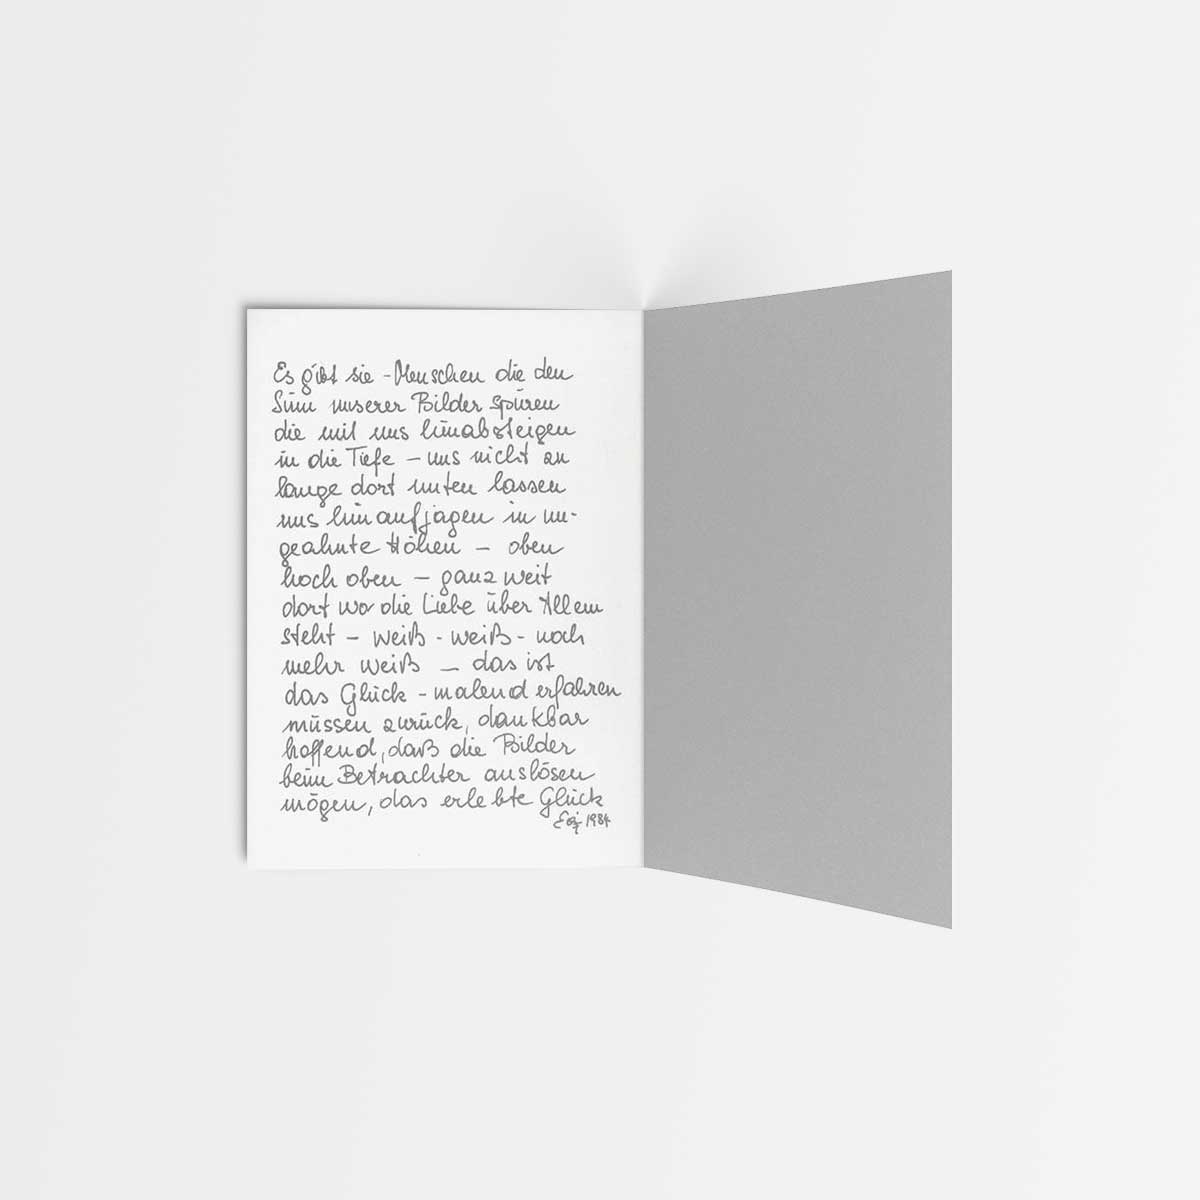 Es gibt sie - Menschen die den
Sinn unserer Bilder spüren
die mit uns hinabsteigen
in die Tiefe - uns nicht zu
lange dort unten lassen
uns hinaufjagen in un-
geahnte Höhen - oben
hoch oben - ganz weit
dort wo die Liebe über Allem
steht - weiß - weiß - noch
mehr weiß - das ist
das Glück - malend erfahren
müssen zurück, dankbar
hoffend, daß die Bilder
beim Betrachter auslösen
mögen, das erlebte Glück
1984